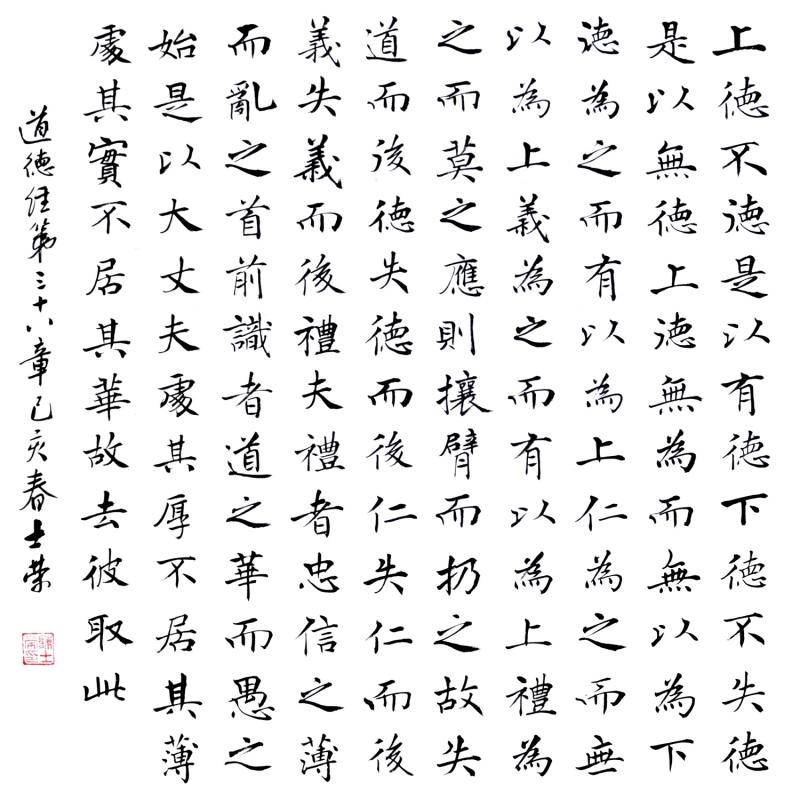 上德不德是以有德下德不失德
是以無德上德無為而無以為下
德為之而有以為上仁為之而無
以為上義為之而有以為上禮為
之而莫之應則攘臂而扔之故失
道而後德失德而後仁失仁而後
義失義而後禮夫禮者忠信之薄
而亂之首前識者道之華而愚之
始是以大丈夫處其厚不居其薄
處其實不居其華故去彼取此
道德經第三十八章己亥春士榮